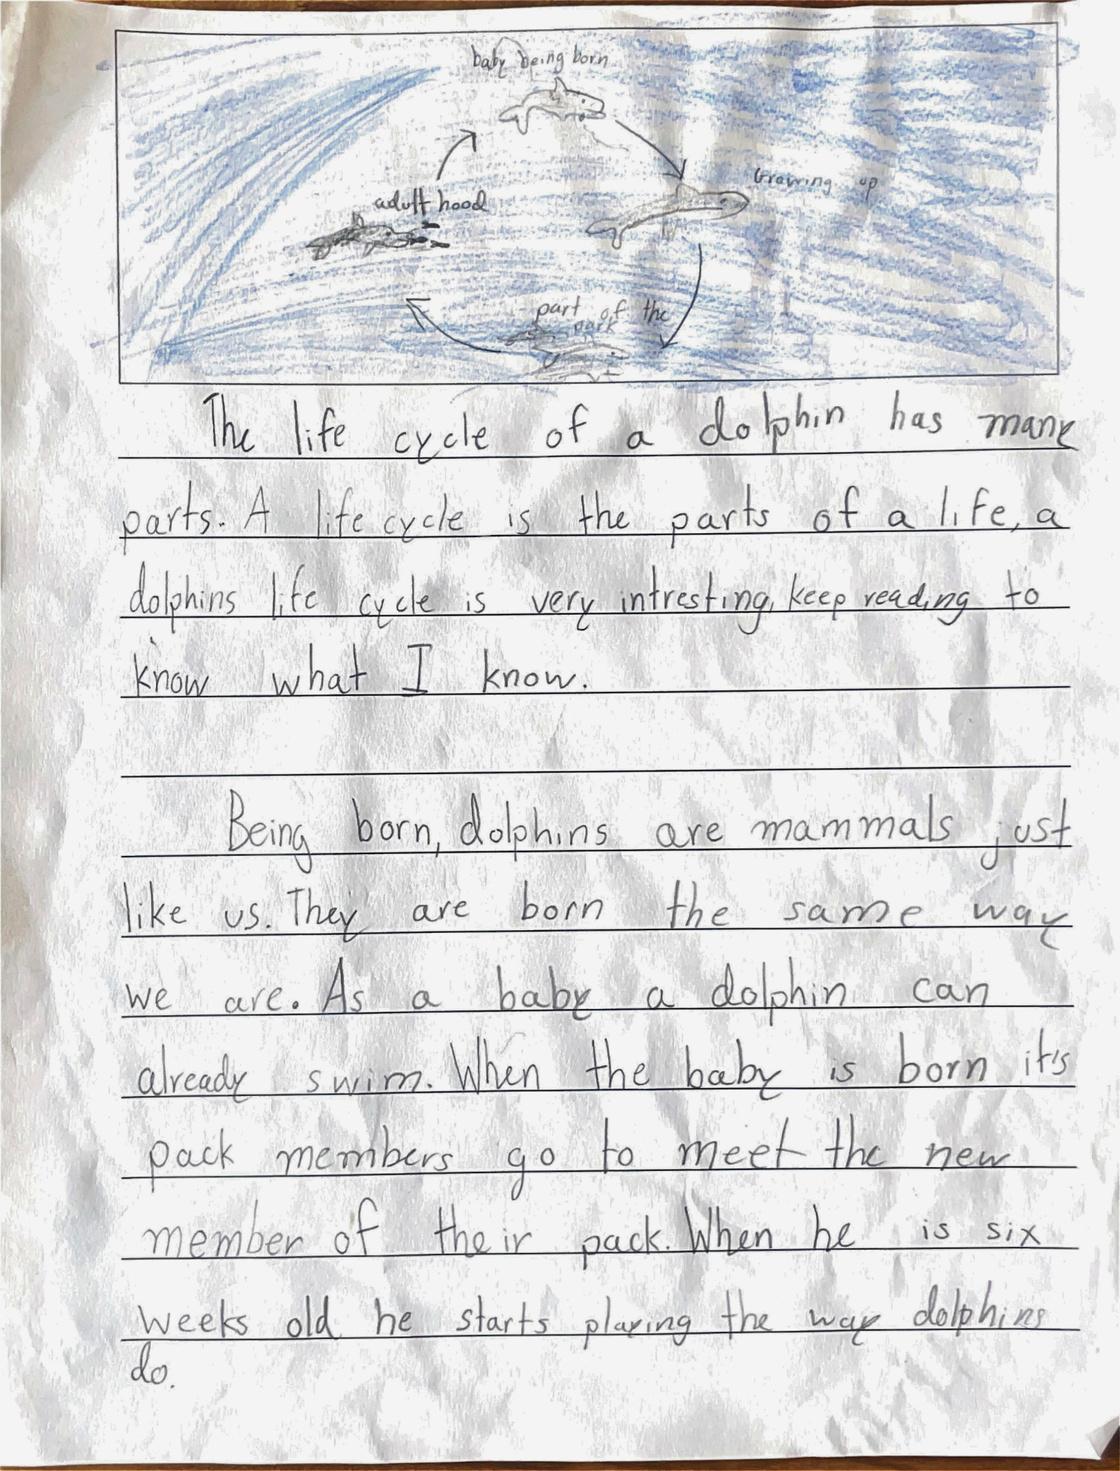 baby being born
Growing up
adult hood
part of the
pack
The life cycle of a dolphin has many
parts. A life cycle is the parts of a life, a
dolphins life cycle is very intresting, keep reading to
know what I know.
Being born, dolphins are mammals just
like us. They are born the same way
we are. As a baby a dolphin can
already swim. When the baby is born it's
pack members go to meet the new
member of their pack. When he is six
weeks old he starts playing the way dolphins
do.